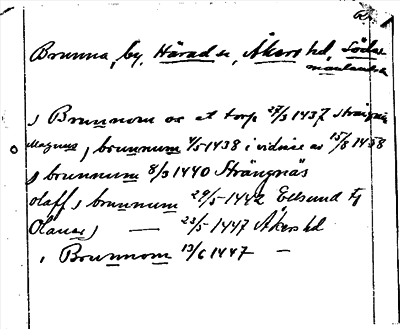 Brunna, by, Härads sn, Åkers hd, Söder
manlands l
i Brunnom ok et torp 27/3 1437 Strängnäs
Magnus i brunnum 4/5 1438 i vidisse av 15/8 1438
i brunnum 8/3 1440 Strängnäs
Olaff i brunnum 29/5 1442 Edsund Fj
Olauus i — 23/5 1447 Åkers hd
i Brunnom 13/6 1447 —